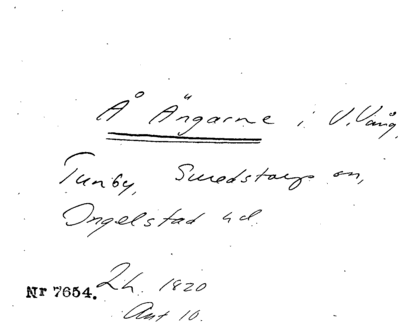 Å Ängarne i V. Vång,
Tunby, Smedstorps sn,
Ingelstad hd.
Nr 7654. Lh. 1820
Akt 10.